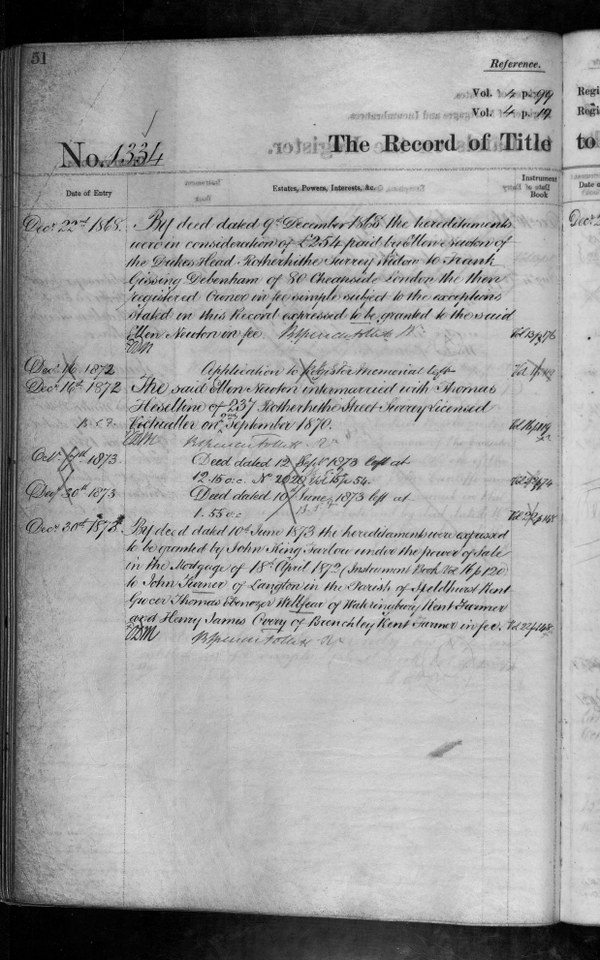 51
Reference.
Vol. 4 p. 99
Vol. 4 p. 19
No. 1334
The Record of Title to
Date of Entry
Estates, Powers, Interests, &c.
Instrument Book
Decr 22nd 1868.
By deed dated 9th December 1868 the hereditaments
were in consideration of £254 paid by Ellen Newton of
the Dukes Head Rotherhithe Surrey Widow to Frank
Gissing Debenham of 80 Cheapside London the then
registered Owner in fee simple subject to the exceptions
stated in this Record expressed to be granted to the said
Ellen Newton in fee
Brent Spencer Follett Rr
Vol 13 p 176
Decr 16 1872
Application to Register memorial left
Decr 16th 1872
The said Ellen Newton intermarried with Thomas
Heseltine of 237 Rotherhithe Street Surrey Licensed
Victualler on September 1870.
Octr 1873
Deed dated 12 Septr 1873 left at
12.15 o.c. No 2020 Vol 15 p 54.
Decr 30th 1873
Deed dated 10 June 1873 left at
1.55 o.c
Vol 22 p 148
Decr 30th 1873
By deed dated 10th June 1873 the hereditaments were expressed
to be granted by John King Farlow under the power of Sale
in the Mortgage of 18th April 1872 (Instrument Book Vol 16 p 120
to John Turner of Langton in the Parish of Speldhurst Kent
Grocer Thomas Ebenezer Wellfear of Wateringbury Kent Farmer
and Henry James Overy of Brenchley Kent Farmer in fee.
Vol 22 p 148